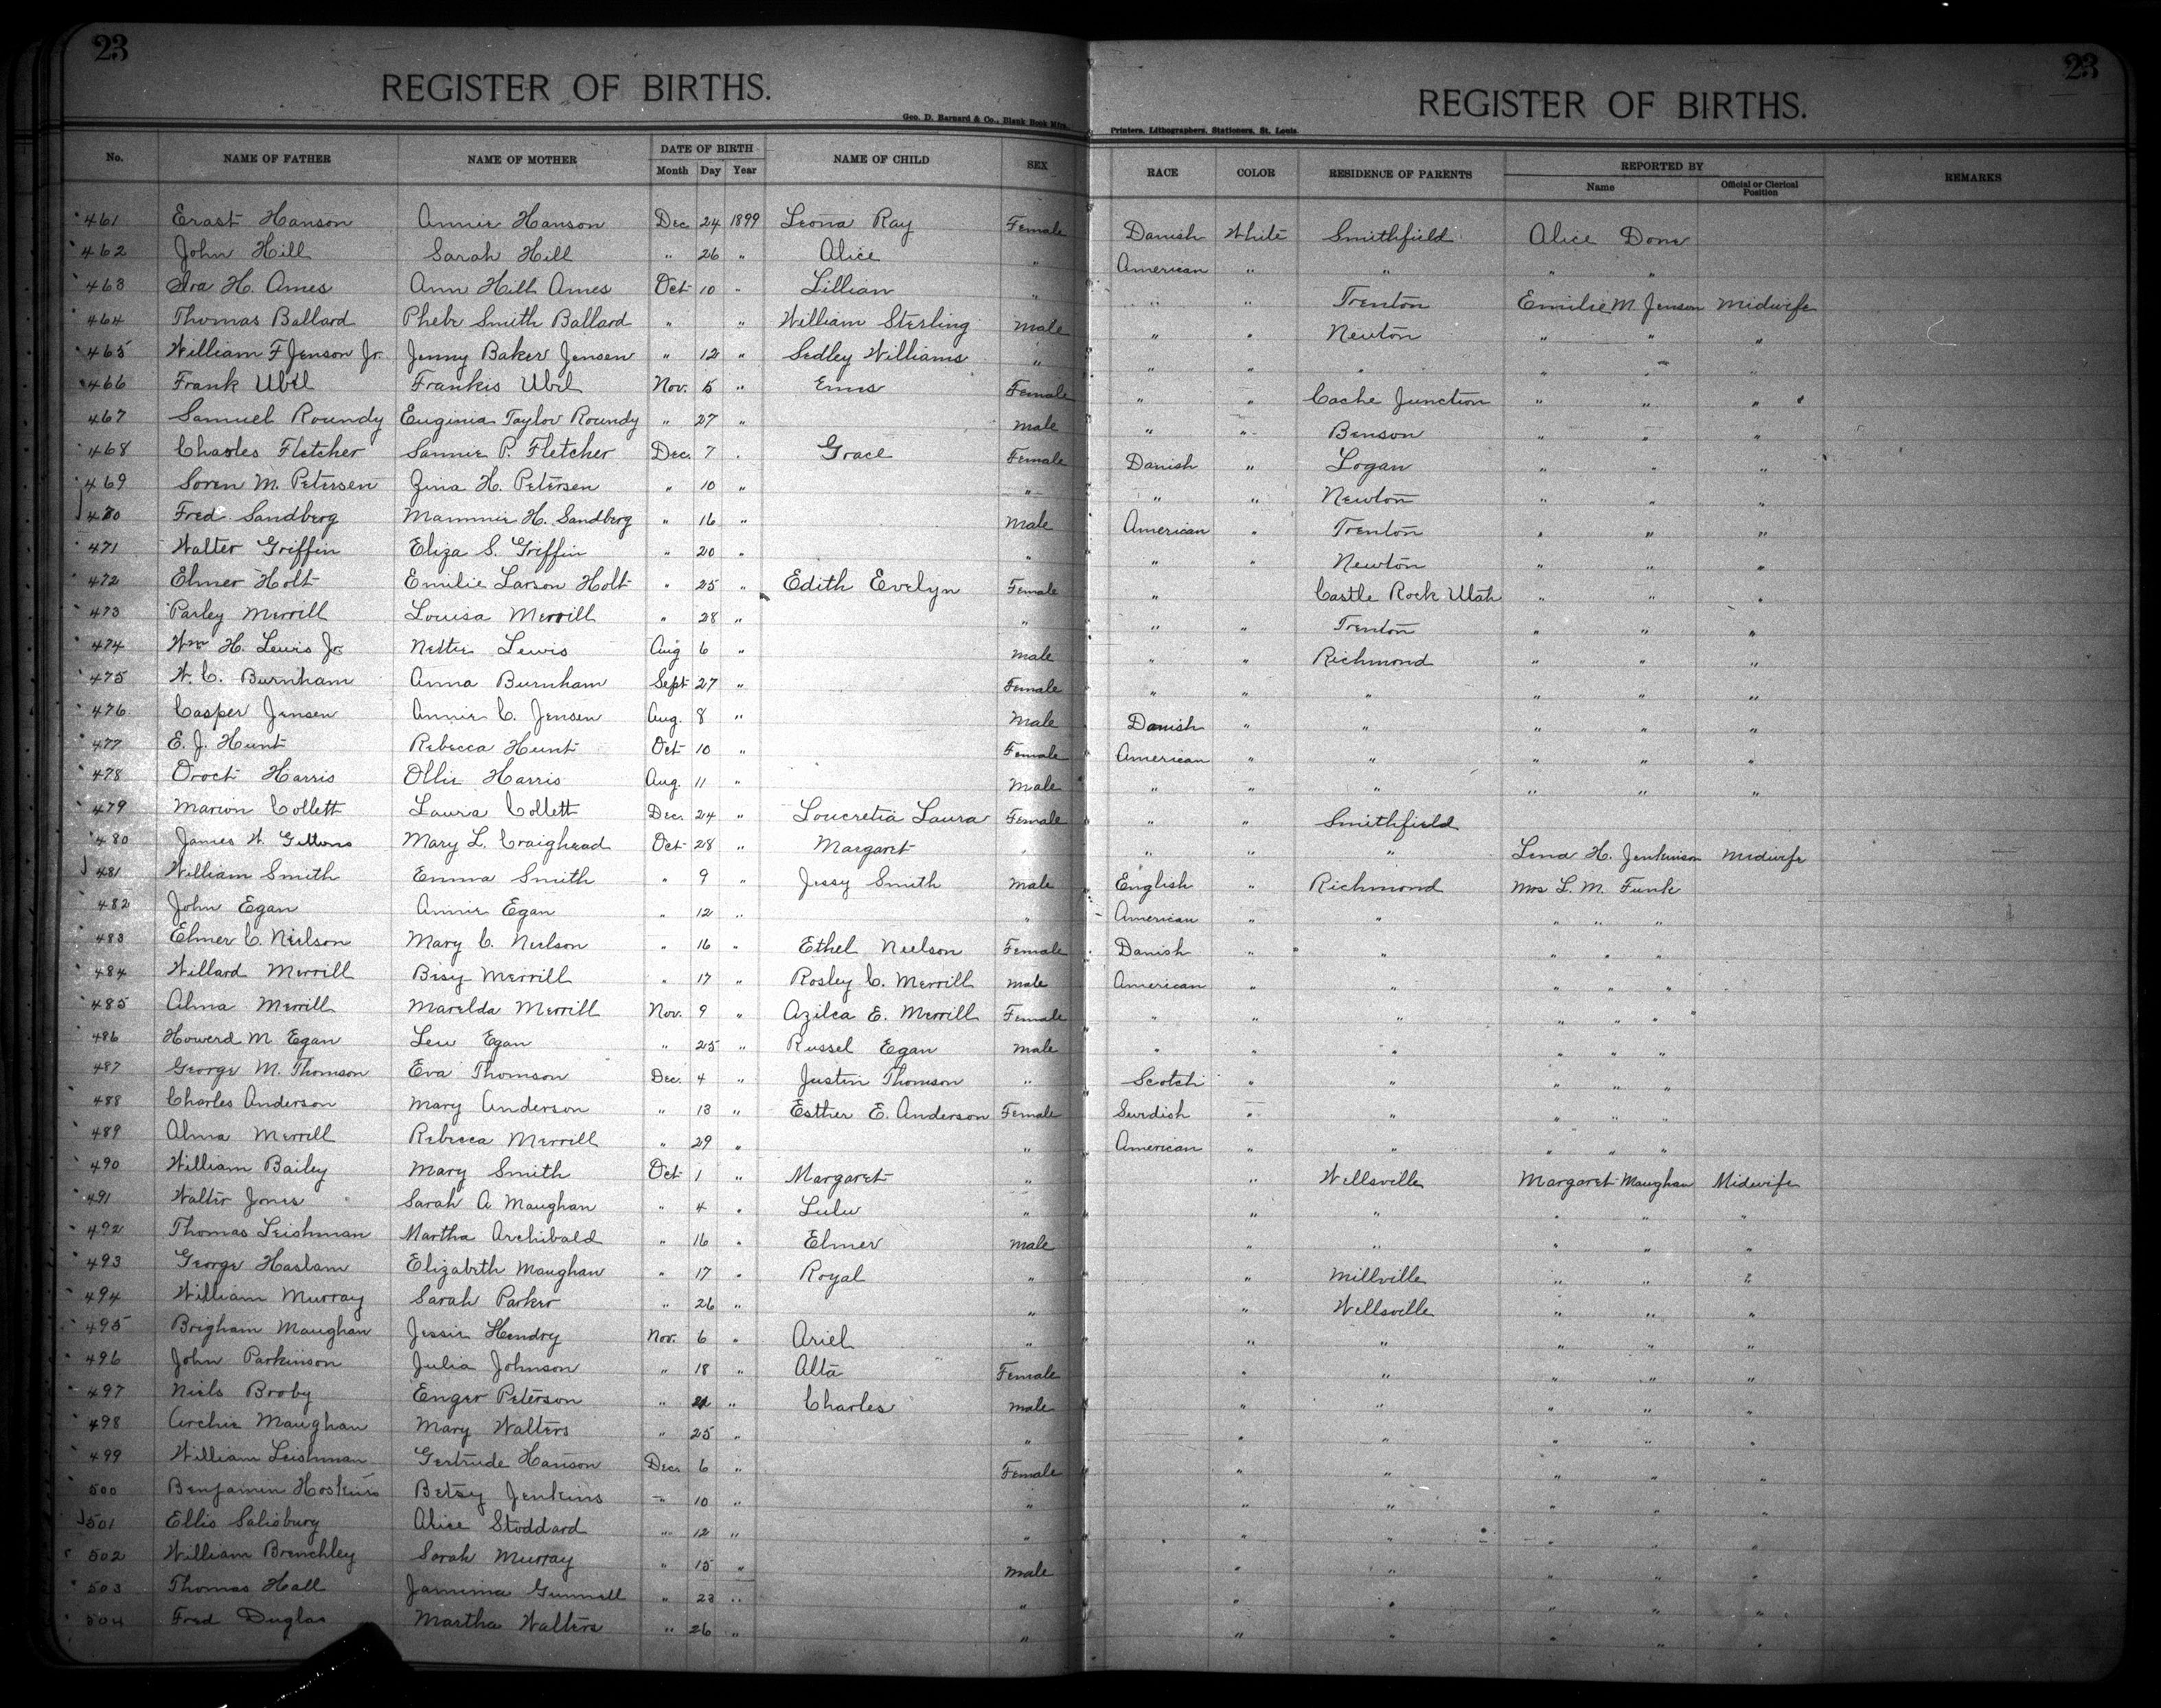 23
23
REGISTER OF BIRTHS.
REGISTER OF BIRTHS.
Geo. D. Barnard & Co., Blank Book Mfrs.
Printers, Lithographers, Stationers, St. Louis.
No. NAME OF FATHER NAME OF MOTHER DATE OF BIRTH Month Day Year NAME OF CHILD SEX RACE COLOR RESIDENCE OF PARENTS REPORTED BY Name Official or Clerical Position REMARKS
461 Erast Hanson Annie Hanson Dec 24 1899 Leona Ray Female Danish White Smithfield Alice Done
462 John Hill Sarah Hill " 26 " Alice " American " " " "
463 Ira H. Ames Ann Hill Ames Oct 10 " Lillian " " " Trenton Emilie M. Jenson Midwife
464 Thomas Ballard Phebe Smith Ballard " " William Sterling Male " " Newton " " "
465 William F Jenson Jr. Jenny Baker Jensen " 12 " Sedley Williams " " " " " " "
466 Frank Ubil Frankis Ubil Nov. 5 " Female " " Cache Junction " " "
467 Samuel Roundy Euginia Taylor Roundy " 27 " Male " " Benson " " "
468 Charles Fletcher Sannie P. Fletcher Dec. 7 " Grace Female Danish " Logan " " "
469 Soren M. Petersen Zina H. Petersen " 10 " " " " Newton " " "
470 Fred Sandberg Mammie H. Sandberg " 16 " Male American " Trenton " " "
471 Walter Griffin Eliza S. Griffin " 20 " " " " Newton " " "
472 Elmer Holt Emilie Larson Holt " 25 " Edith Evelyn Female " Castle Rock Utah " " "
473 Parley Merrill Louisa Merrill " 28 " " " " Trenton " " "
474 Wm H. Lewis Jr. Nettie Lewis Aug 6 " Male " " Richmond " " "
475 W. C. Burnham Anna Burnham Sept 27 " Female " " " " " "
476 Casper Jensen Annie C. Jensen Aug. 8 " Male Danish " " " " "
477 E. J. Hunt Rebecca Hunt Oct 10 " Female American " " " " "
478 Harris Ollie Harris Aug. 11 " Male " " " " " "
479 Marion Collett Laura Collett Dec. 24 " Loucretia Laura Female " " Smithfield
480 James W. Gittons Mary L. Craighead Oct 28 " Margaret " " " " Lena H. Jenkinson Midwife
481 William Smith Emma Smith " 9 " Jessy Smith Male English " Richmond Mrs L. M. Funk
482 John Egan Annie Egan " 12 " " American " " " " "
483 Elmer C. Neilson Mary C. Neilson " 16 " Ethel Neilson Female Danish " " " " "
484 Willard Merrill Besy Merrill " 17 " Rosley C. Merrill Male American " " " " "
485 Alma Merrill Marelda Merrill Nov. 9 " Azilea E. Merrill Female " " " " " "
486 Howerd M Egan Leu Egan " 25 " Russel Egan Male " " " " " "
487 George M. Thomson Eva Thomson Dec. 4 " Justin Thomson " Scotch " " " " "
488 Charles Anderson Mary Anderson " 13 " Esther E. Anderson Female Swedish " " " "
489 Alma Merrill Rebecca Merrill " 29 " " American " " " " "
490 William Bailey Mary Smith Oct 1 " Margaret " " Wellsville Margaret Maughan Midwife
491 Walter Jones Sarah A Maughan " 4 " Lulu " " " " " "
492 Thomas Leishman Martha Archibald " 16 " Elmer Male " " " " "
493 George Haslam Elizabeth Maughan " 17 " Royal " " Millville " " "
494 William Murray Sarah Parker " 26 " " " Wellsville " " "
495 Brigham Maughan Jessie Hendry Nov. 6 " Ariel " " " " " "
496 John Parkinson Julia Johnson " 18 " Alta Female " " " " "
497 Niels Broby Enger Peterson " 21 " Charles Male " " " " "
498 Archie Maughan Mary Walters " 25 " " " " " " "
499 William Leishman Gertrude Hanson Dec. 6 " Female " " " " "
500 Benjamin Hoskins Betsy Jenkins " 10 " " " " " " "
501 Ellis Salisbury Alice Stoddard " 12 " " " " " " "
502 William Brenchley Sarah Murray " 15 " Male " " " " "
503 Thomas Hall Jamima Gunnell " 23 " " " " " " "
504 Fred Duglas Martha Walters " 26 " " " " " " "